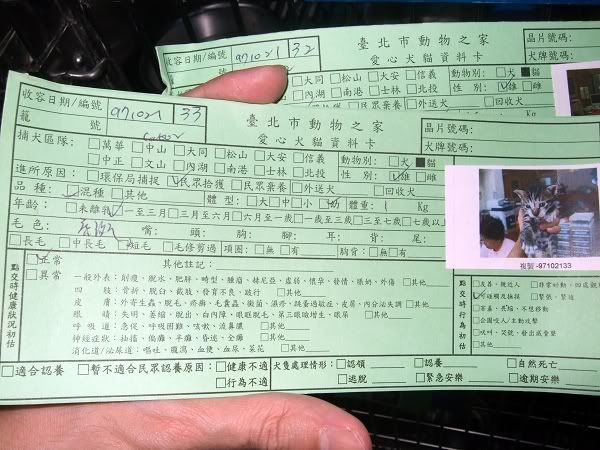 收容日期/編號 971021 32
臺北市動物之家
愛心犬貓資料卡
晶片號碼:
犬牌號碼:
□大同 □松山 □大安 □信義 動物別: □犬 ■貓
□內湖 □南港 □士林 □北投 性 別: ☑雄 □雌
□民眾棄養 □外送犬 □回收犬
收容日期/編號 971021 33
籠 號
臺北市動物之家
愛心犬貓資料卡
晶片號碼:
犬牌號碼:
捕犬區隊: □萬華 □中山 □大同 □松山 □大安 □信義 動物別: □犬 ■貓
□中正 □文山 □內湖 □南港 □士林 □北投 性 別: ☑雄 □雌
進所原因: □環保局捕捉 ☑民眾拾獲 □民眾棄養 □外送犬 □回收犬
品 種: ☑混種 □其他 體 型: □大 □中 □小 ☑幼 體重: Kg
年齡: □未離乳 ☑一至三月 □三月至六月 □六月至一歲 □一歲至三歲 □三至七歲 □七歲以上
毛 色: 嘴: 頭: 胸: 腳: 耳: 背: 尾:
□長毛 □中長毛 ☑短毛 □毛修剪過 項圈: □無 □有 胸背: □無 □有
點交時健康狀況初估
☑正常
□異常
其他註記:
一般外表: 削瘦、脫水、肥胖、畸型、腫瘤、赫尼亞、虛弱、懷孕、發情、眼奶、外傷 □其他
四 肢: 骨折、脫臼、截肢、發育不良、跛行 □其他
皮 膚: 外寄生蟲、脫毛、疥癬、毛囊蟲、黴菌、濕疹、跳蚤過敏症、皮屑、內分泌失調 □其他
眼 睛: 失明、萎縮、脫出、白內障、眼眶脫毛、第三眼瞼增生、眼屎 □其他
呼 吸 道: 急促、呼吸困難、咳嗽、流鼻膿 □其他
神經症狀: 抽搐、偏癱、半癱、昏迷、全癱 □其他
消化道/泌尿道: 嘔吐、腹瀉、血便、血尿、菜花 □其他
複製 -97102133
點交時行為初估
□友善、親近人 □非常好動、四處觀
☑可碰觸及撫摸 □緊張、緊迫
□害羞、畏縮、不想移動
□公開咬人/主動攻擊
□吠叫、哭號、發出威脅聲
□其他
□適合認養 □暫不適合民眾認養原因: □健康不適 □行為不適
犬隻處理情形: □認領 □認養 □自然死亡
□逃脫 □緊急安樂 □逾期安樂